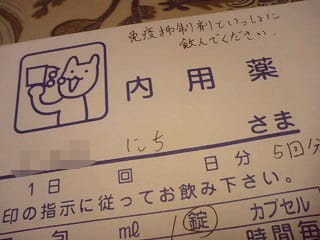 免疫抑制剤といっしょに
飲んでください.
内用薬
にち さま
1日 回 日分 5回分
印の指示に従ってお飲み下さい。
包 ml 錠 カプセル
時間毎